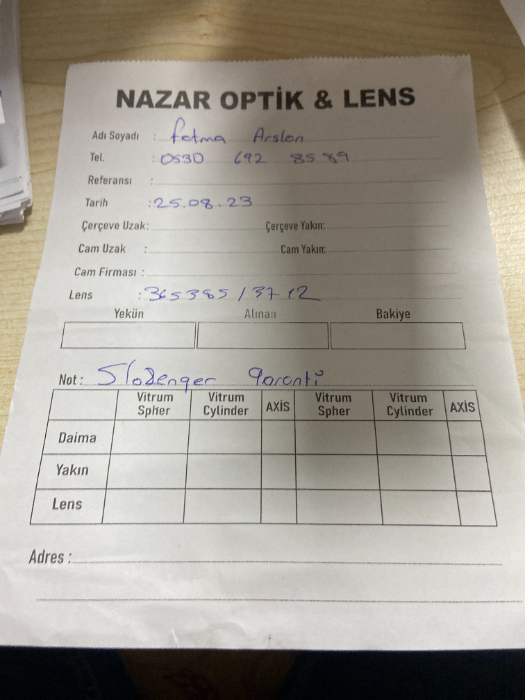 NAZAR OPTİK & LENS
Adı Soyadı : Fatma Arslan
Tel. : 0530 692 85 89
Referansı :
Tarih : 25.08.23
Çerçeve Uzak: Çerçeve Yakın:
Cam Uzak : Cam Yakın:
Cam Firması :
Lens : 365385 / 37 12
Yekün Alınan Bakiye
Not : Slazenger garanti
Vitrum Spher Vitrum Cylinder AXİS Vitrum Spher Vitrum Cylinder AXİS
Daima
Yakın
Lens
Adres :